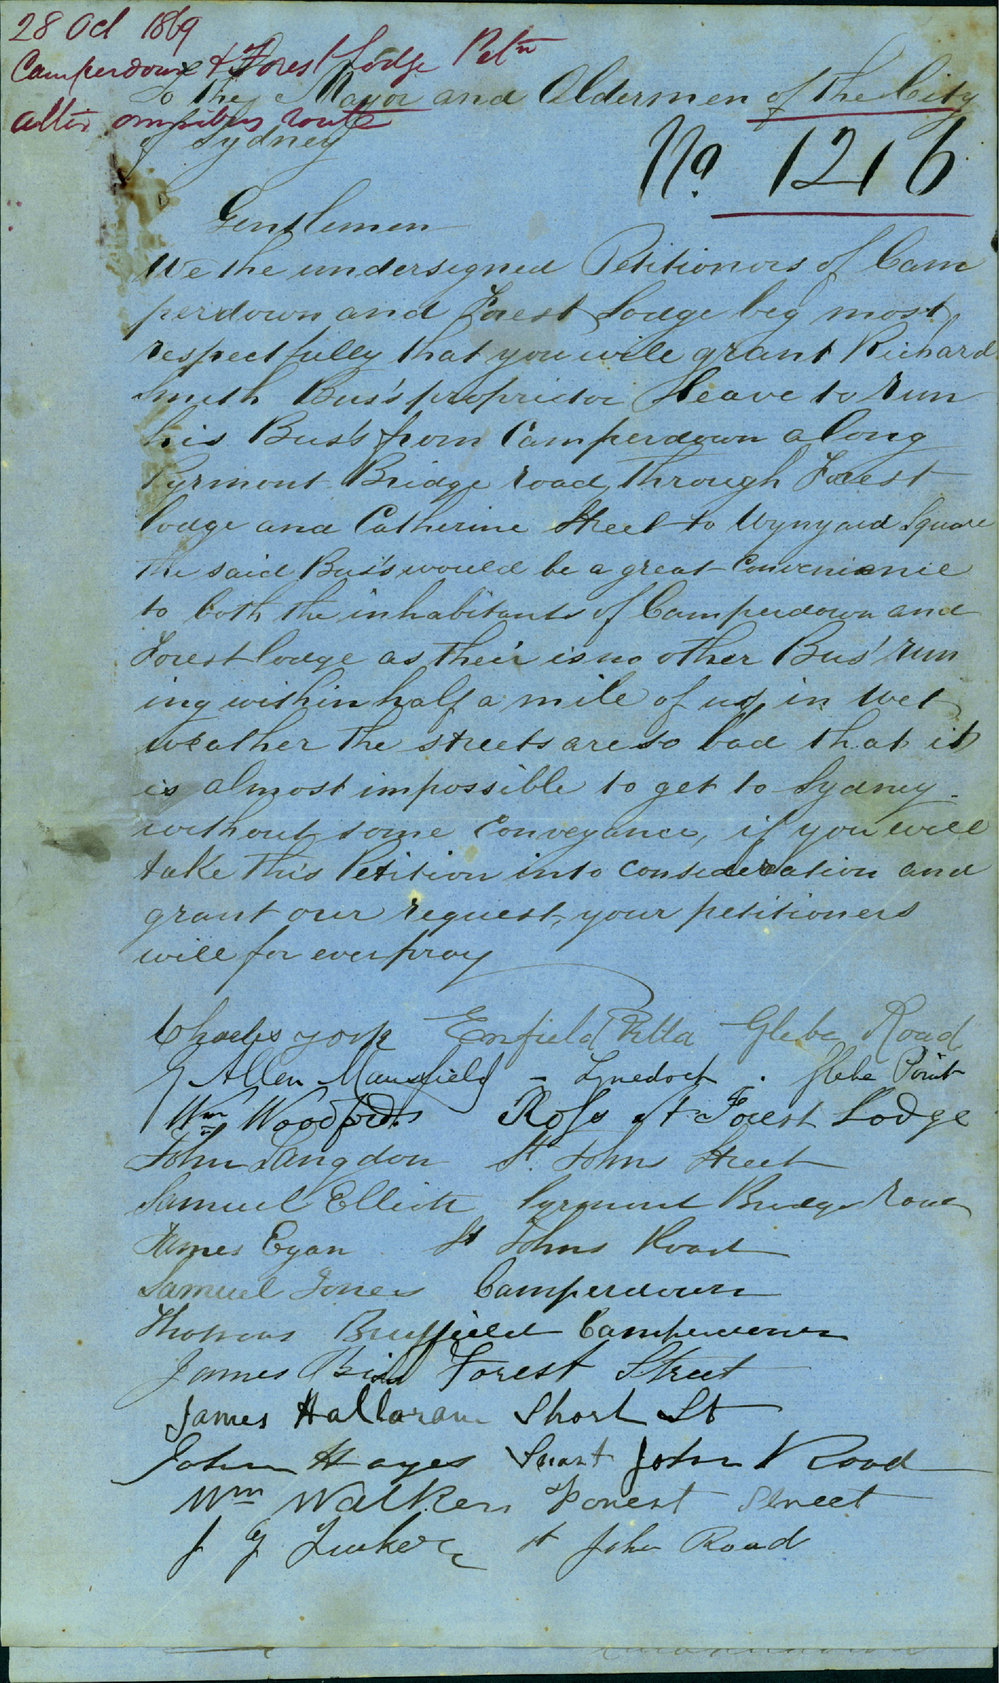 28 Oct 1869
Camperdown & Forest Lodge Petn
alter omnibus route
To the Mayor and Aldermen of the City
of Sydney
No. 1216
Gentlemen
We the undersigned Petitioners of Cam
perdown and Forest Lodge beg most
respectfully that you will grant Richard
Smith Bus's proprietor leave to run
his Bus's from Camperdown along
Pyrmont Bridge road, through Forest
lodge and Catherine Street to Wynyard Square
the said Bus's would be a great convenience
to both the inhabitants of Camperdown and
Forest lodge as their is no other Bus' run
ing within half a mile of us, in wet
weather the streets are so bad that it
is almost impossible to get to Sydney
without some conveyance, if you will
take this Petition into consideration and
grant our request, your petitioners
will for ever pray
Charles York Enfield Villa Glebe Road
G Allen Mansfield - Lynedoch . Glebe Point
Wm Woodford Ross st Forest Lodge
John Langdon St. Johns Street
Samuel Elliott Pyrmont Bridge Road
James Egan St Johns Road
Samuel Jones Camperdown
Thomas Camperdown
James Bird Forest Street
James Hallaran Short St
John Hayes Saint John Road
Wm Walker Forest Street
J Tucker st John Road